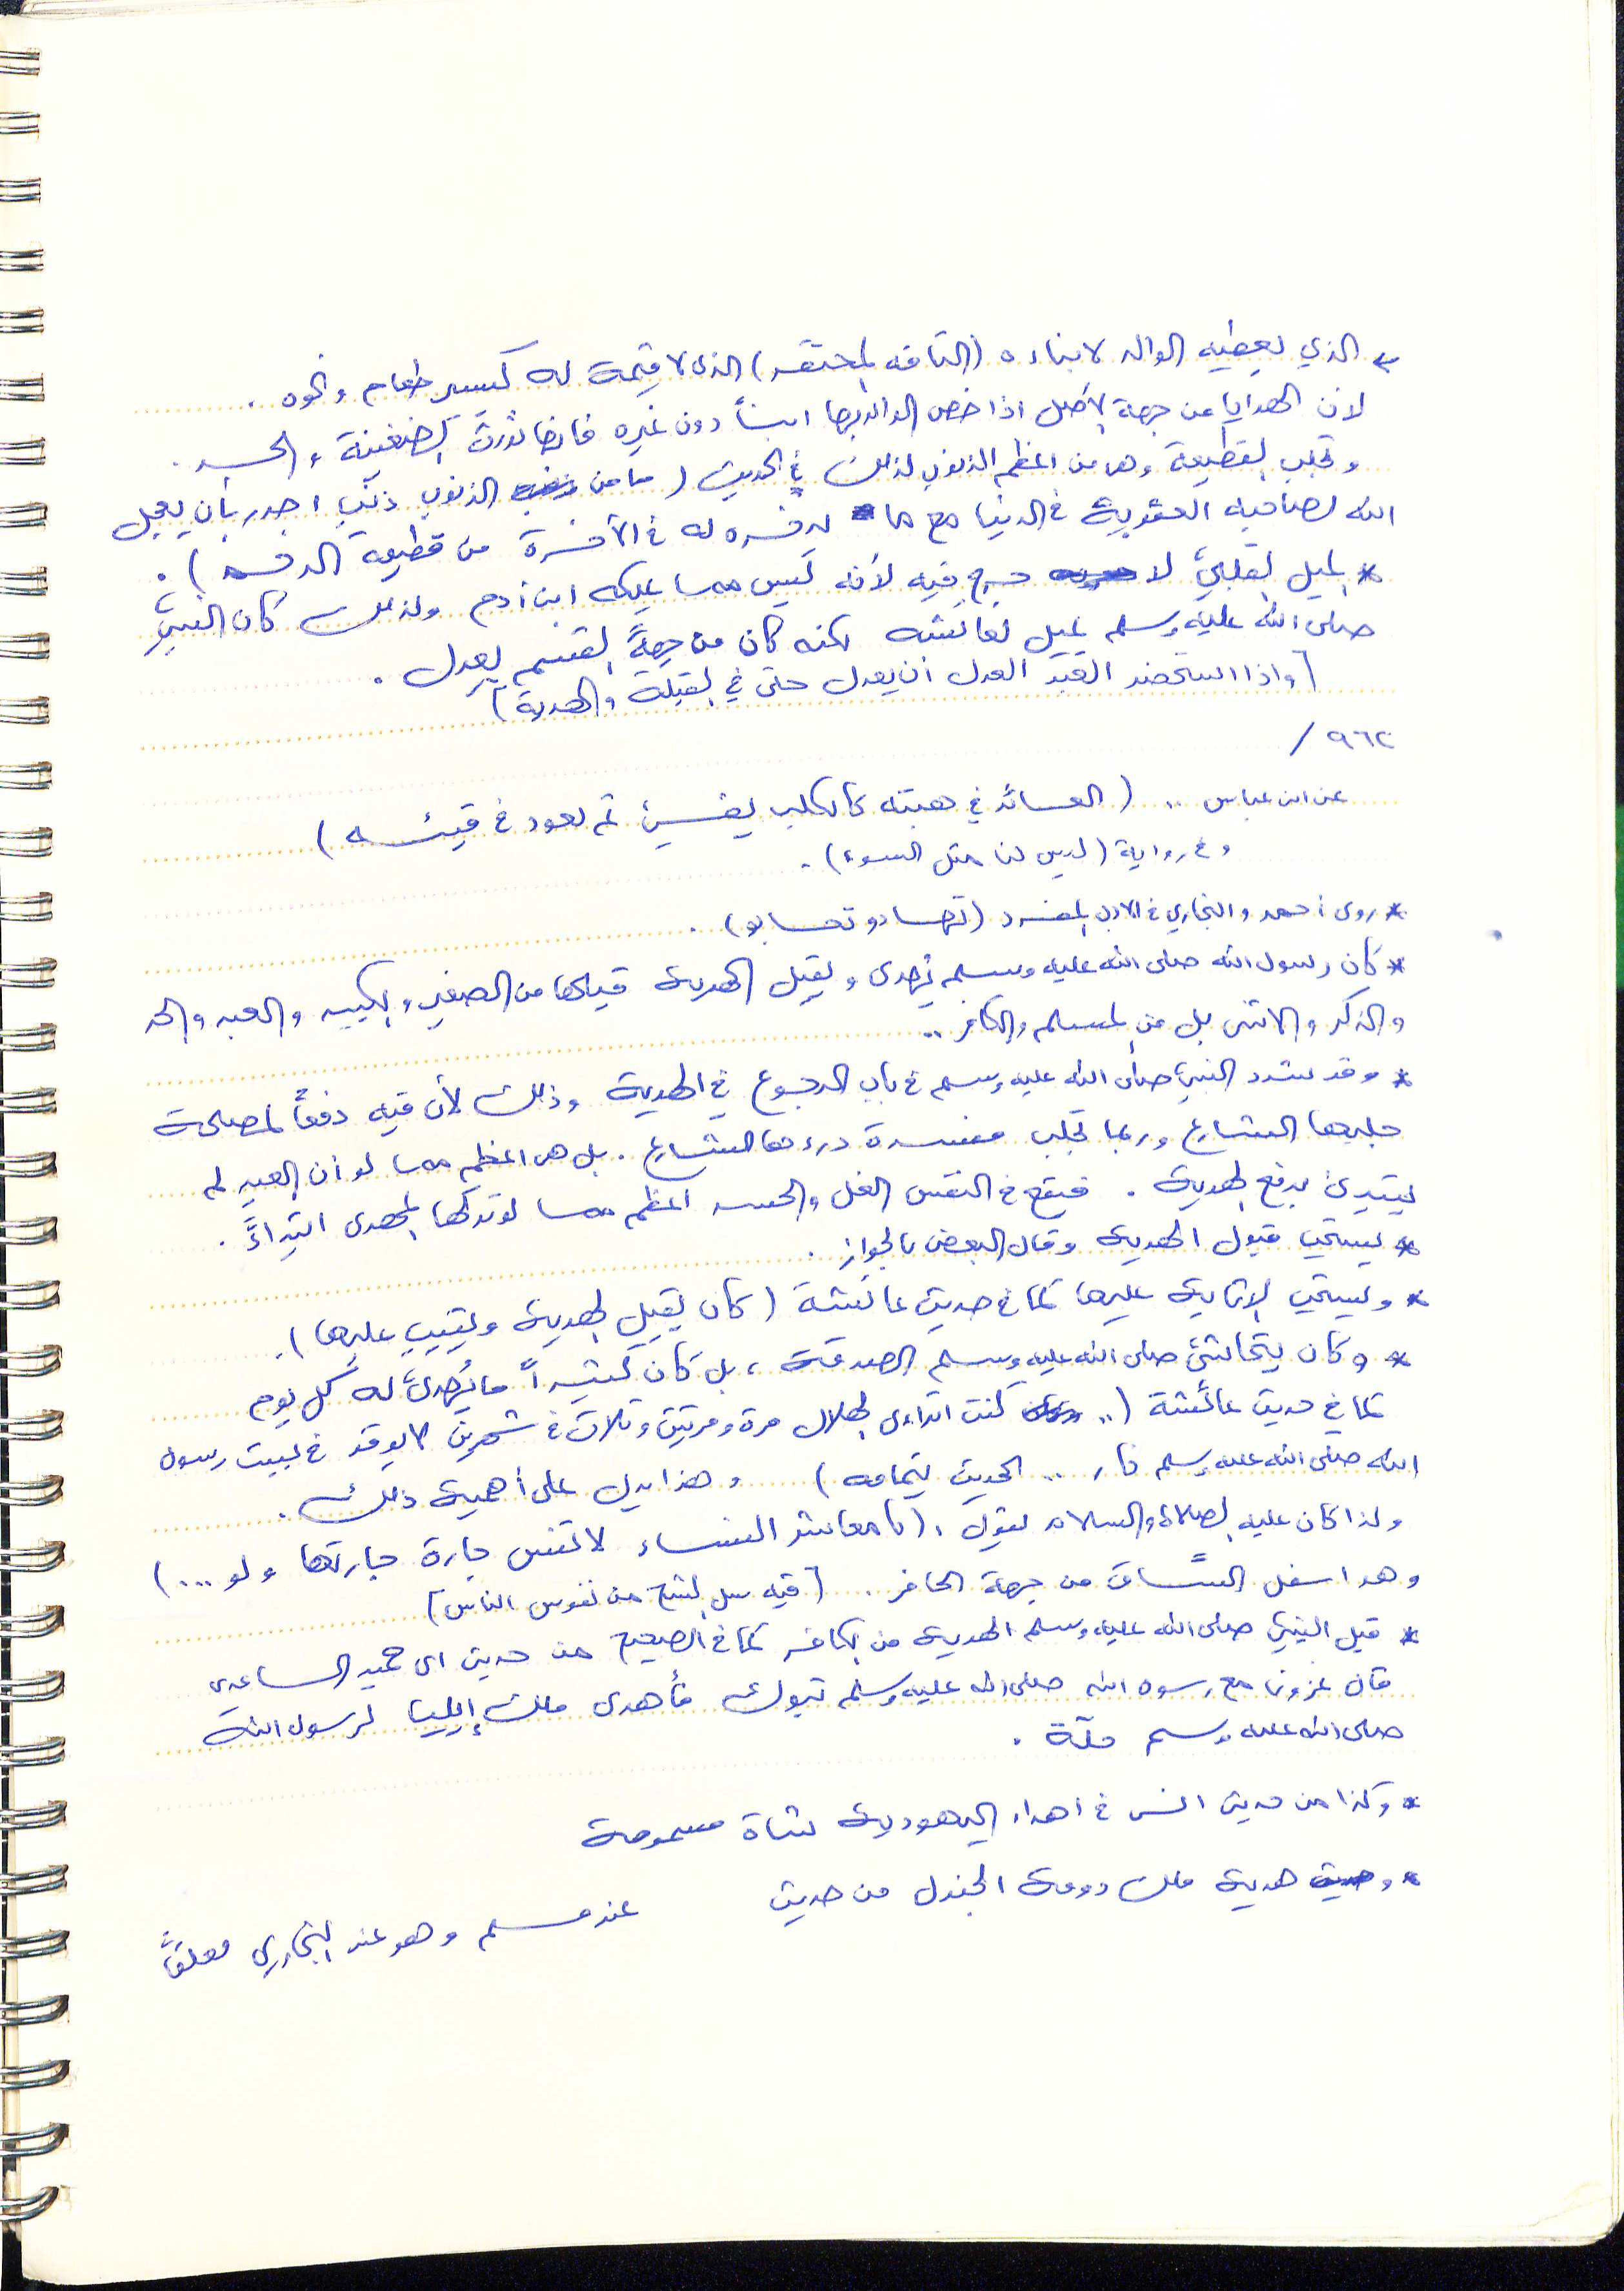 * الذي يعطيه الوالد لابناءه (التافه المحتقر) الذي لا قيمة له كيسير طعام ونحوه .
لان الهدايا من جهة الأصل اذا خص الوالد بها ابناً دون غيره فانها تورث الضغينة والحسد .
وتجلب القطيعة وهي من اعظم الذنوب لذلك في الحديث (ما من الذنوب ذنب اجدر بأن يعجل
الله لصاحبه العقوبة في الدنيا مع ما يدخره له في الآخرة من قطيعة الرحم) .
* الميل القلبي لا حرج فيه لأنه ليس مما يملكه ابن آدم ولذلك كان النبي
صلى الله عليه وسلم يميل لعائشه لكنه كان من جهة القسم يعدل .
[واذا استحضر العبد العدل أن يعدل حتى في القبلة والهدية]
٩٦٢ /
عن ابن عباس .. (العائد في هبته كالكلب يقيء ثم يعود في قيئه)
وفي رواية (ليس لنا مثل السوء) .
* روى أحمد والبخاري في الادب المفرد (تهادو تحابو) .
* كان رسول الله صلى الله عليه وسلم يُهدى ويقبل الهدية قبلها من الصغير والكبير والعبد والحر
والذكر والانثى بل من المسلم والكافر ..
* وقد شدد النبي صلى الله عليه وسلم في باب الرجوع في الهدية وذلك لأن فيه دفعاً لمصلحة
جلبها الشارع وربما تجلب مفسدة درءها الشارع . بل هي اعظم مما لو أن العبد لم
يبتدئ بدفع الهدية . فيقع في النفس الغل والحسد اعظم مما لو تركها المهدي ابتداءً .
* يستحب قبول الهدية وقال البعض بالجواز .
* ويستحب الإثابة عليها كما في حديث عائشة (كان يقبل الهدية ويثيب عليها) .
* وكان يتحاشى صلى الله عليه وسلم الصدقة ، بل كان كثيراً ما يُهدى له كل يوم
كما في حديث عائشة (.. كنت اتراءى الهلال مرة ومرتين وثلاث في شهرين لا يوقد في بيت رسول
الله صلى الله عليه وسلم نار .. الحديث بتمامه) وهذا يدل على أهمية ذلك .
ولذا كان عليه الصلاة والسلام يقول : (يا معاشر النساء لا تنس جارة جارتها ولو ....)
وهو اسفل الساق من جهة الحافر . [فيه سل الشح من نفوس الناس]
* قبل النبي صلى الله عليه وسلم الهدية من الكافر كما في الصحيح من حديث ابي حميد الساعدي
قال غزونا مع رسول الله صلى الله عليه وسلم تبوك فأهدى ملك إيليا لرسول الله
صلى الله عليه وسلم حلة .
* وكذا من حديث انس في اهداء اليهودية شاة مسمومة
* و هدية ملك دومة الجندل من حديث عند مسلم وهو عند البخاري معلقاً